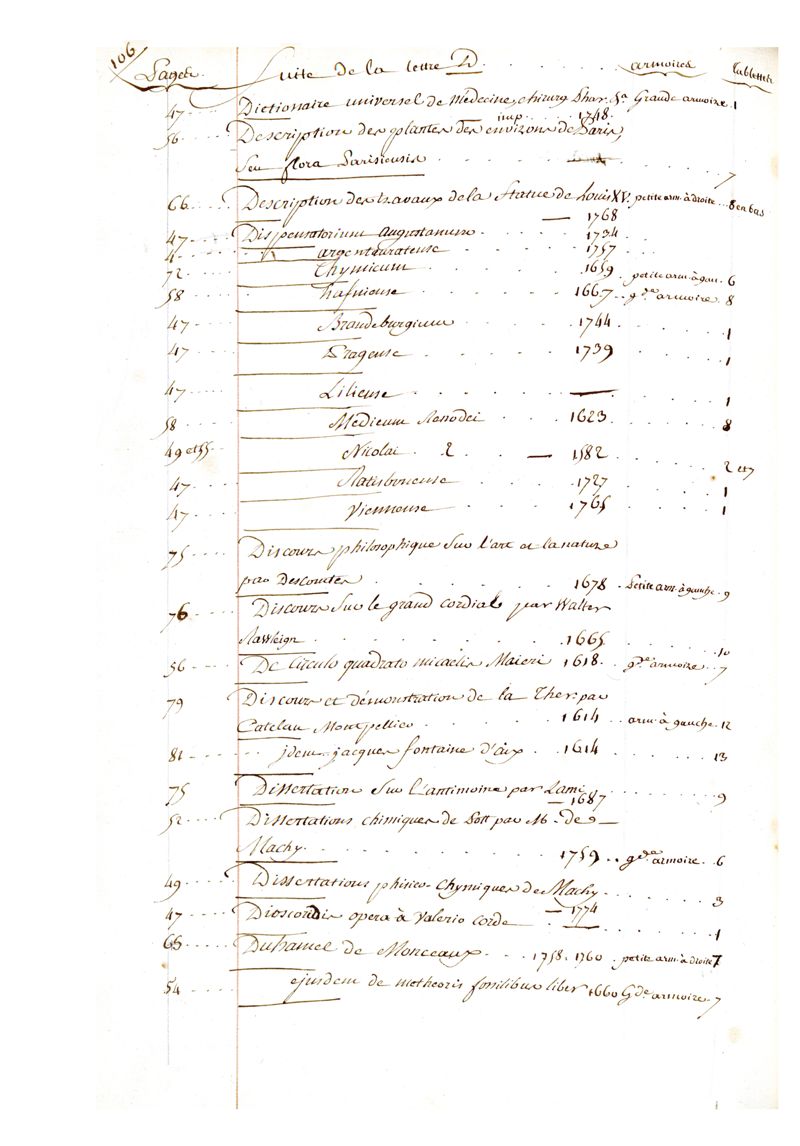 106
Pages. Suite de la lettre D. armoires tablettes
47 Dictionaire universel de Medecine, chirurg Phar. &a Grande armoire. 1
imp. 1748.
56 Description des plantes des environs de Paris,
Seu flora Parisiensis 7
66 Description des travaux de la Statue de Louis XV. petite arm. à droite 8 en bas
1768
47 Dispensatorium augustanum 1734
4 argenturateuse 1757
72 Chymicum 1659 petite arm. à gau. 6
58 hafniense 1667 gde armoire 8
47 Brandeburgicum 1744 1
47 Prageuse 1739 1
47 Lilieuse 1
58 Medicum Renodei 1623 8
49 et 55 Nicolai. 2 1582 2 et 7
47 Ratisboneuse 1727 1
47 Vienneuse 1765 1
75 Discours philosophique Sur l'art et la nature
par Descomtes 1678 Petite arm. à gauche. 9
76 Discours Sur le grand cordial par Walter
Rawleign 1665 10
56 De Circulo quadrato micaelis Maieri 1618. gde armoire 7
79 Discours et démonstration de la Ther. par
Catelan Montpellier 1614 arm. à gauche. 12
81 jdem jacques fontaine d'aix 1614 13
75 Dissertation Sur l'antimoine par Lami 9
1687
52 Dissertations chimiques de Pott par M. de
Machy. 1759 gde armoire 6
49 Dissertations phisico-chymiques de Machy 3
1774
47 Dioscoridis opera à Valerio Corde 1
65 Duhamel de Monceaux 1758. 1760 petite arm. à droite 7
54 ejusdem de metheoris fossilibus liber 1660 Gde armoire. 7